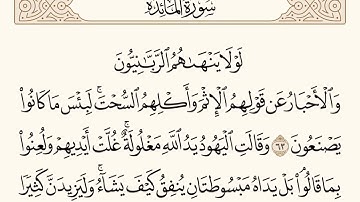 سُورَةُ المَائِدَة
لَوْلَا يَنْهَىٰهُمُ ٱلرَّبَّٰنِيُّونَ
وَٱلْأَحْبَارُ عَن قَوْلِهِمُ ٱلْإِثْمَ وَأَكْلِهِمُ ٱلسُّحْتَۚ لَبِئْسَ مَا كَانُوا۟
يَصْنَعُونَ ٦٣ وَقَالَتِ ٱلْيَهُودُ يَدُ ٱللَّهِ مَغْلُولَةٌۚ غُلَّتْ أَيْدِيهِمْ وَلُعِنُوا۟
بِمَا قَالُوا۟ۘ بَلْ يَدَاهُ مَبْسُوطَتَانِ يُنفِقُ كَيْفَ يَشَآءُۚ وَلَيَزِيدَنَّ كَثِيرًا